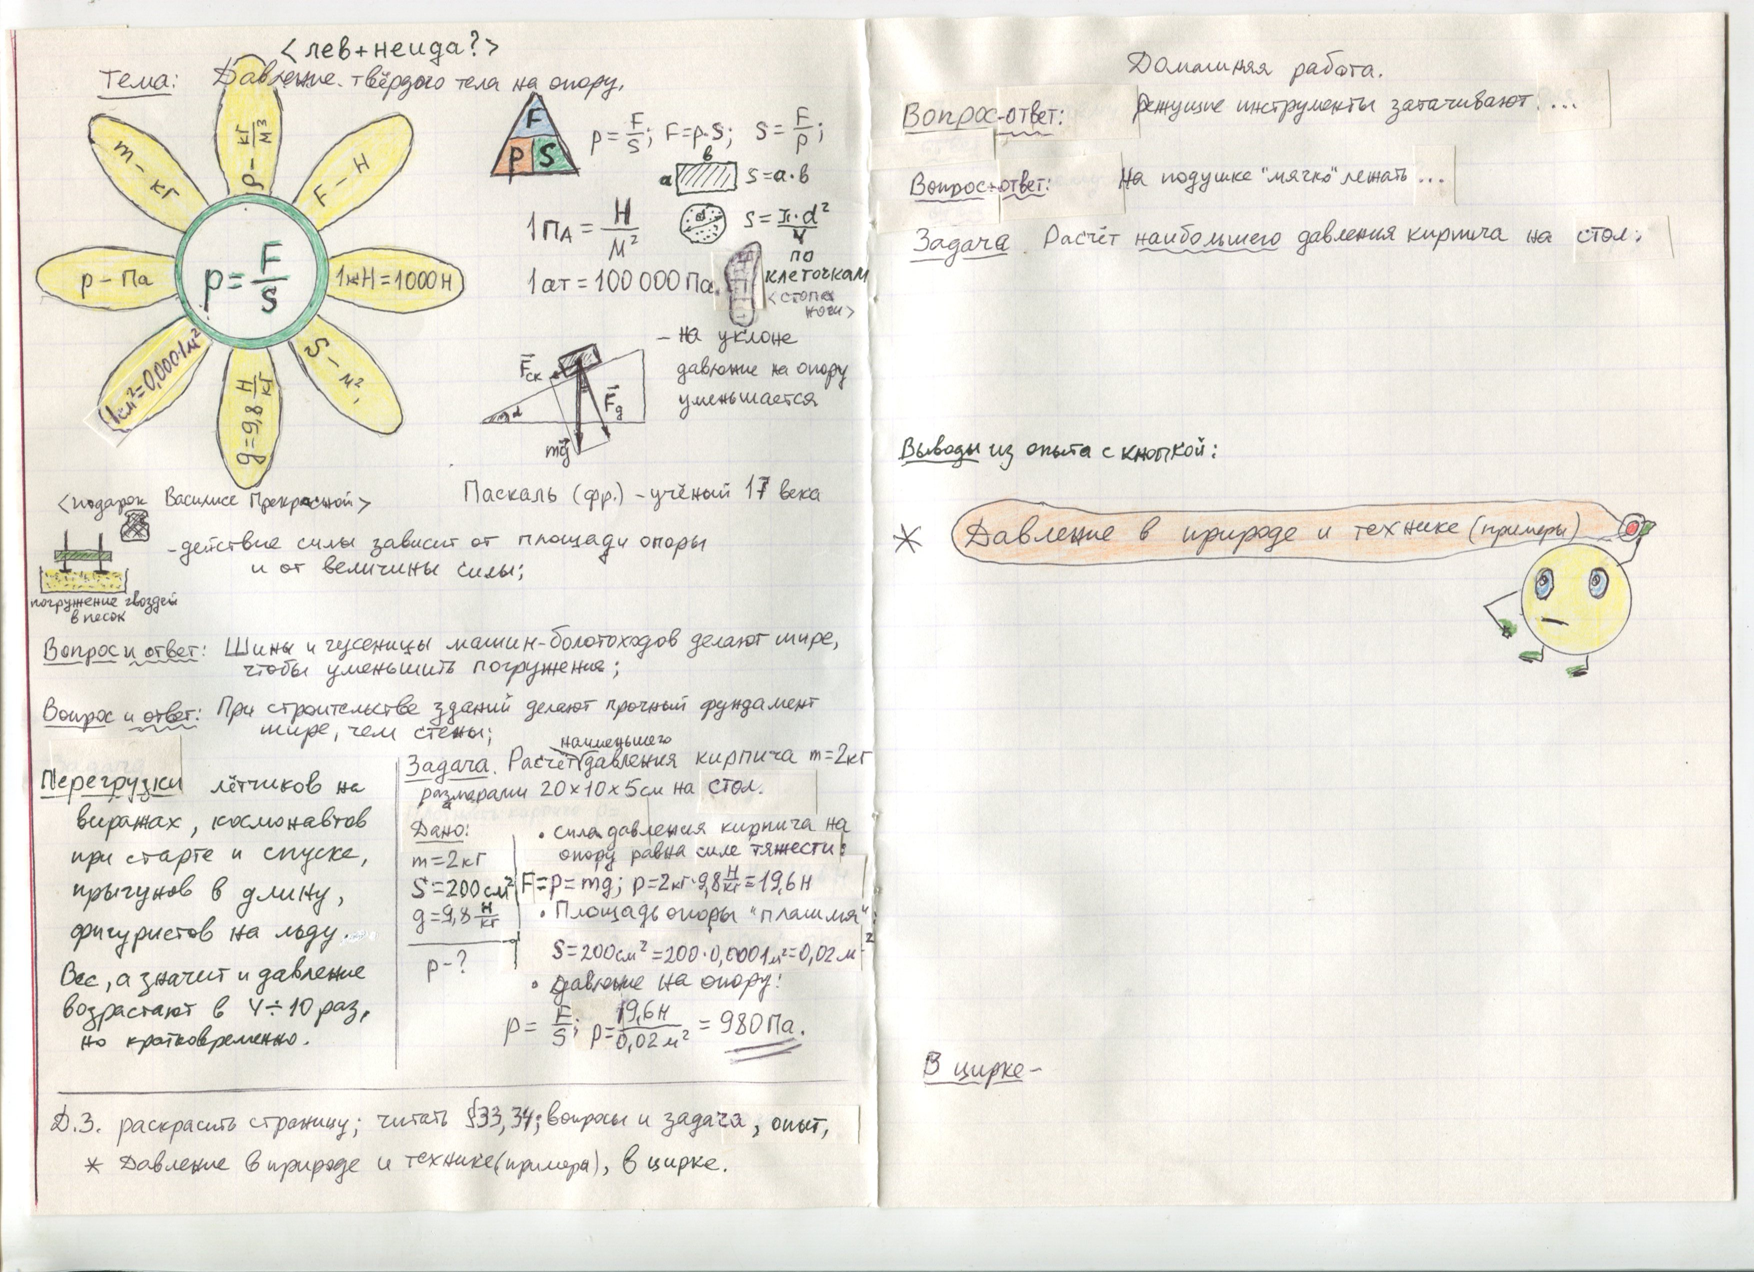 <лев+неида?>
Тема: Давление твёрдого тела на опору.
ρ – кг/м³
F – Н
1кН=1000Н
S – м²
g=9,8 Н/кг
1см²=0,0001м²
p – Па
m – кг
p=F/S
F
P S
p=F/S; F=p·S; S=F/p;
в
а S=а·в
1Па=Н/м²
d S=π·d²/4
1ат=100 000Па.
по
клеточкам
<стопа
ноги>
– на уклоне
давление на опору
уменьшается
Fск
α
Fд
mg
<подарок Василисе Прекрасной>
Паскаль (фр.) – учёный 17 века
– действие силы зависит от площади опоры
и от величины силы;
погружение гвоздей
в песок
Вопрос и ответ: Шины и гусеницы машин-болотоходов делают шире,
чтобы уменьшить погружение;
Вопрос и ответ: При строительстве зданий делают прочный фундамент
шире, чем стены;
Перегрузки лётчиков на
виражах, космонавтов
при старте и спуске,
прыгунов в длину,
фигуристов на льду.
Вес, а значит и давление
возрастают в 4÷10 раз,
но кратковременно.
наименьшего
Задача. Расчёт давления кирпича m=2кг
размерами 20×10×5см на стол.
Дано:
m=2кг
S=200см²
g=9,8 Н/кг
p–?
• сила давления кирпича на
опору равна силе тяжести:
F=p=mg; p=2кг·9,8 Н/кг=19,6Н
• Площадь опоры "плашмя":
S=200см²=200·0,0001м²=0,02м²
• давление на опору:
p=F/S; p=19,6Н/0,02м²=980Па.
Д.З. раскрасить страницу; читать §33,34; вопросы и задача, опыт,
* Давление в природе и технике(примера), в цирке.
Домашняя работа.
Вопрос-ответ: Режущие инструменты затачивают ...
Вопрос+ответ: На подушке "мягко" лежать ...
Задача. Расчёт наибольшего давления кирпича на стол:
Выводы из опыта с кнопкой:
* Давление в природе и технике (примеры)
В цирке–